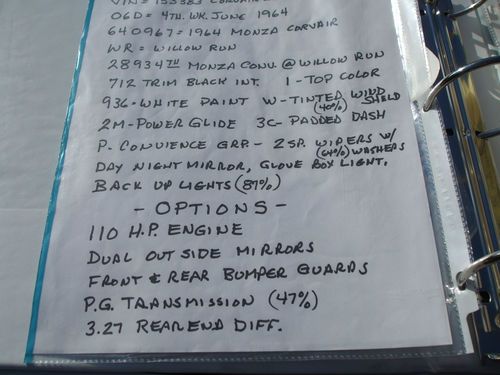 VIN = 153383 CORVAIR
06D = 4TH. WK. JUNE 1964
640967 = 1964 MONZA CORVAIR
WR = WILLOW RUN
28934TH MONZA CONV. @ WILLOW RUN
712 TRIM BLACK INT. 1-TOP COLOR
936-WHITE PAINT W-TINTED WIND SHIELD (40%)
2M-POWER GLIDE 3C-PADDED DASH
P-CONVUIENCE GRP. - 2SP. WIPERS W/ WASHERS (64%)
DAY NIGHT MIRROR, GLOVE BOX LIGHT,
BACK UP LIGHTS (87%)
- OPTIONS -
110 H.P. ENGINE
DUAL OUT SIDE MIRRORS
FRONT & REAR BUMPER GUARDS
P.G. TRANSMISSION (47%)
3.27 REAR END DIFF.